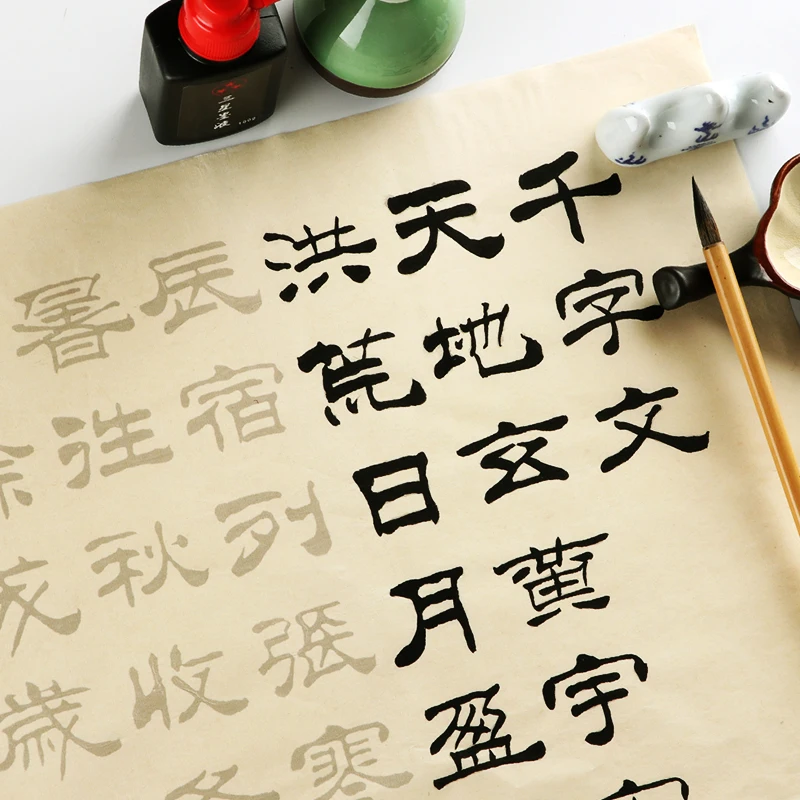 千字文
天地玄黃宇
洪荒日月盈
辰宿列張寒
暑往秋收
成歲
墨液